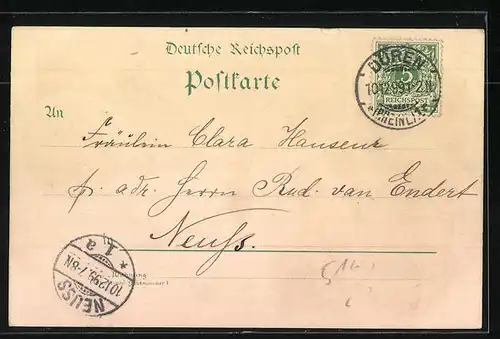 Deutsche Reichspost
Postkarte
An
DÜREN
10.12.99.1-2N.
(RHEINL.)
5
REICHSPOST
Fräulein Clara Hanseur
p. adr. Herrn Rud. van Endert
Neuss.
1a
10.12.99.7-8N.
NEUSS
Wohnung